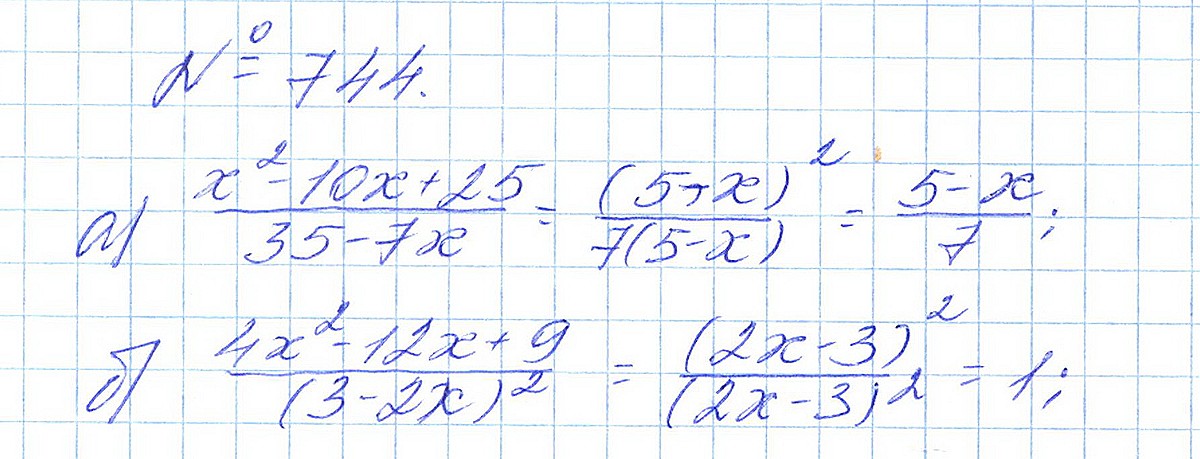 № 744.
а) (x² - 10x + 25)/(35 - 7x) = (5 - x)²/(7(5 - x)) = (5 - x)/7;
б) (4x² - 12x + 9)/(3 - 2x)² = (2x - 3)²/(2x - 3)² = 1;